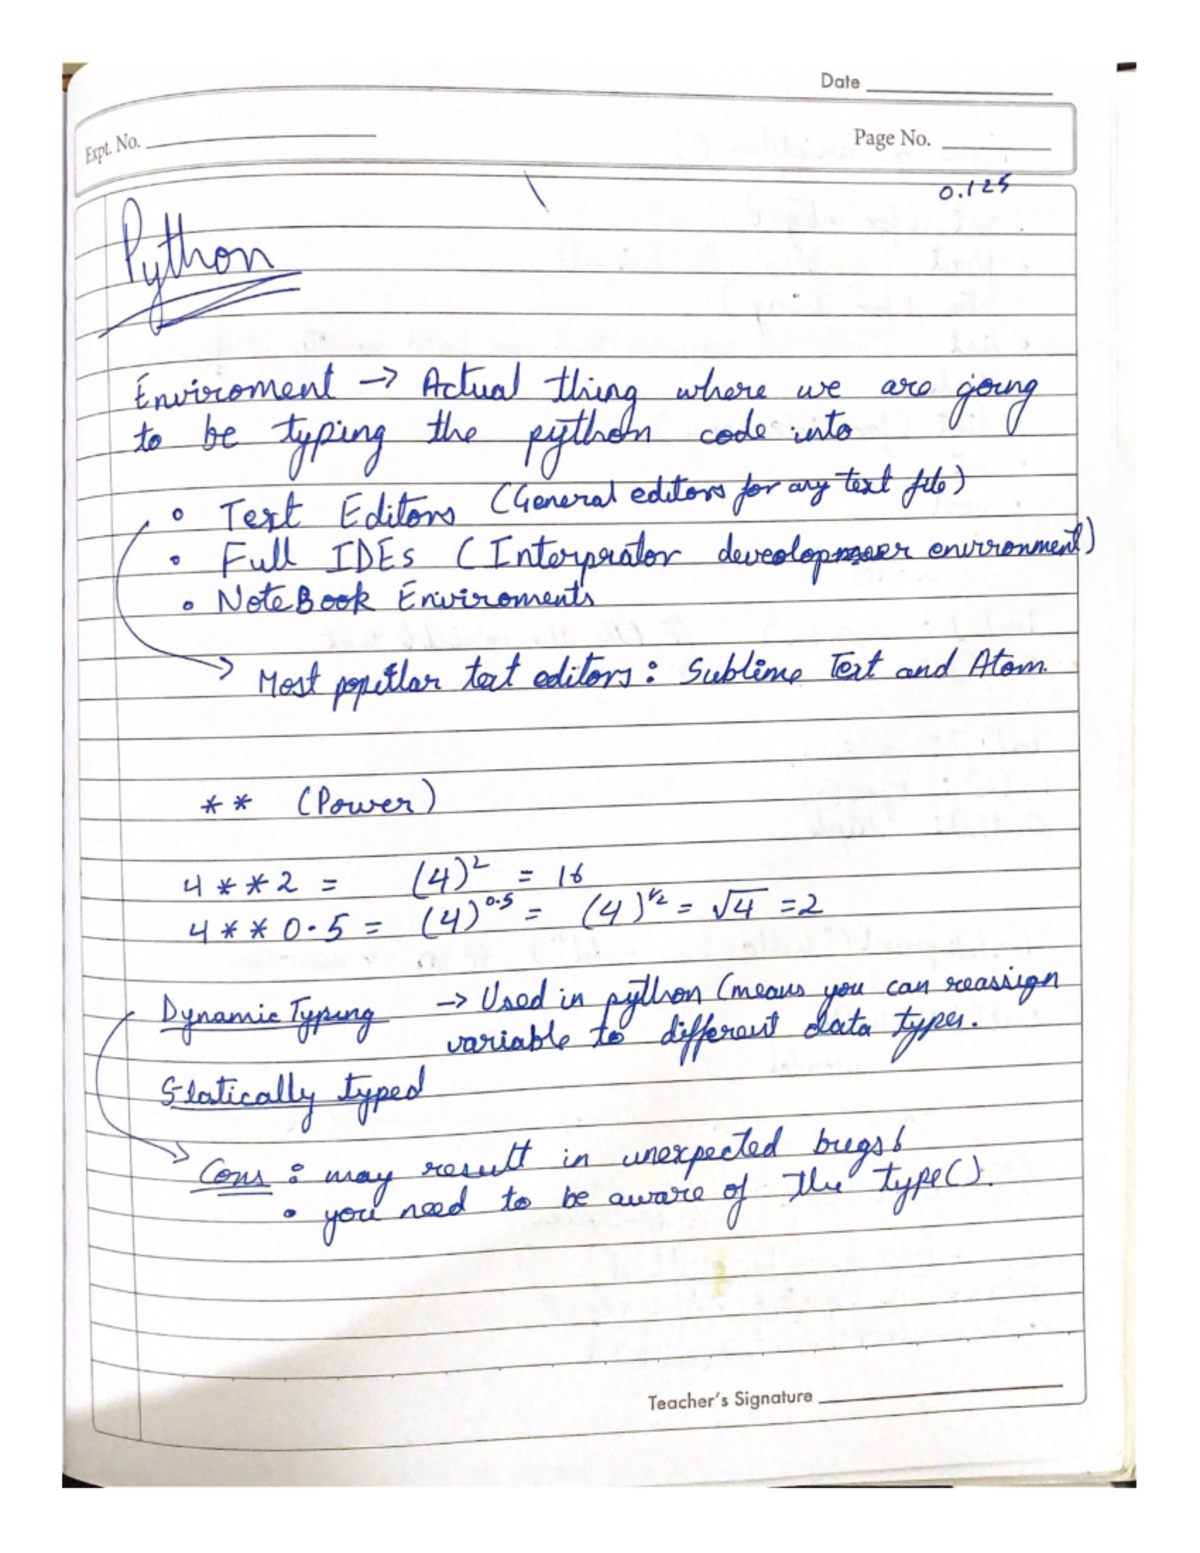 Date
Expt. No.
Page No.
0.125
Python
Enviroment → Actual thing where we are going
to be typing the python code into
∘ Text Editors (General editors for any text file)
∘ Full IDEs (Interprator environment)
∘ NoteBook Enviroments
→ Most popular text editors : Sublime Text and Atom.
** (Power)
4 ** 2 = (4)² = 16
4 ** 0.5 = (4)^0.5 = (4)^1/2 = √4 = 2
Dynamic Typing → Used in python (means you can reassign
variable to different data types.
Statically typed
→ Cons : may result in unexpected bugs!
∘ you need to be aware of the type().
Teacher's Signature